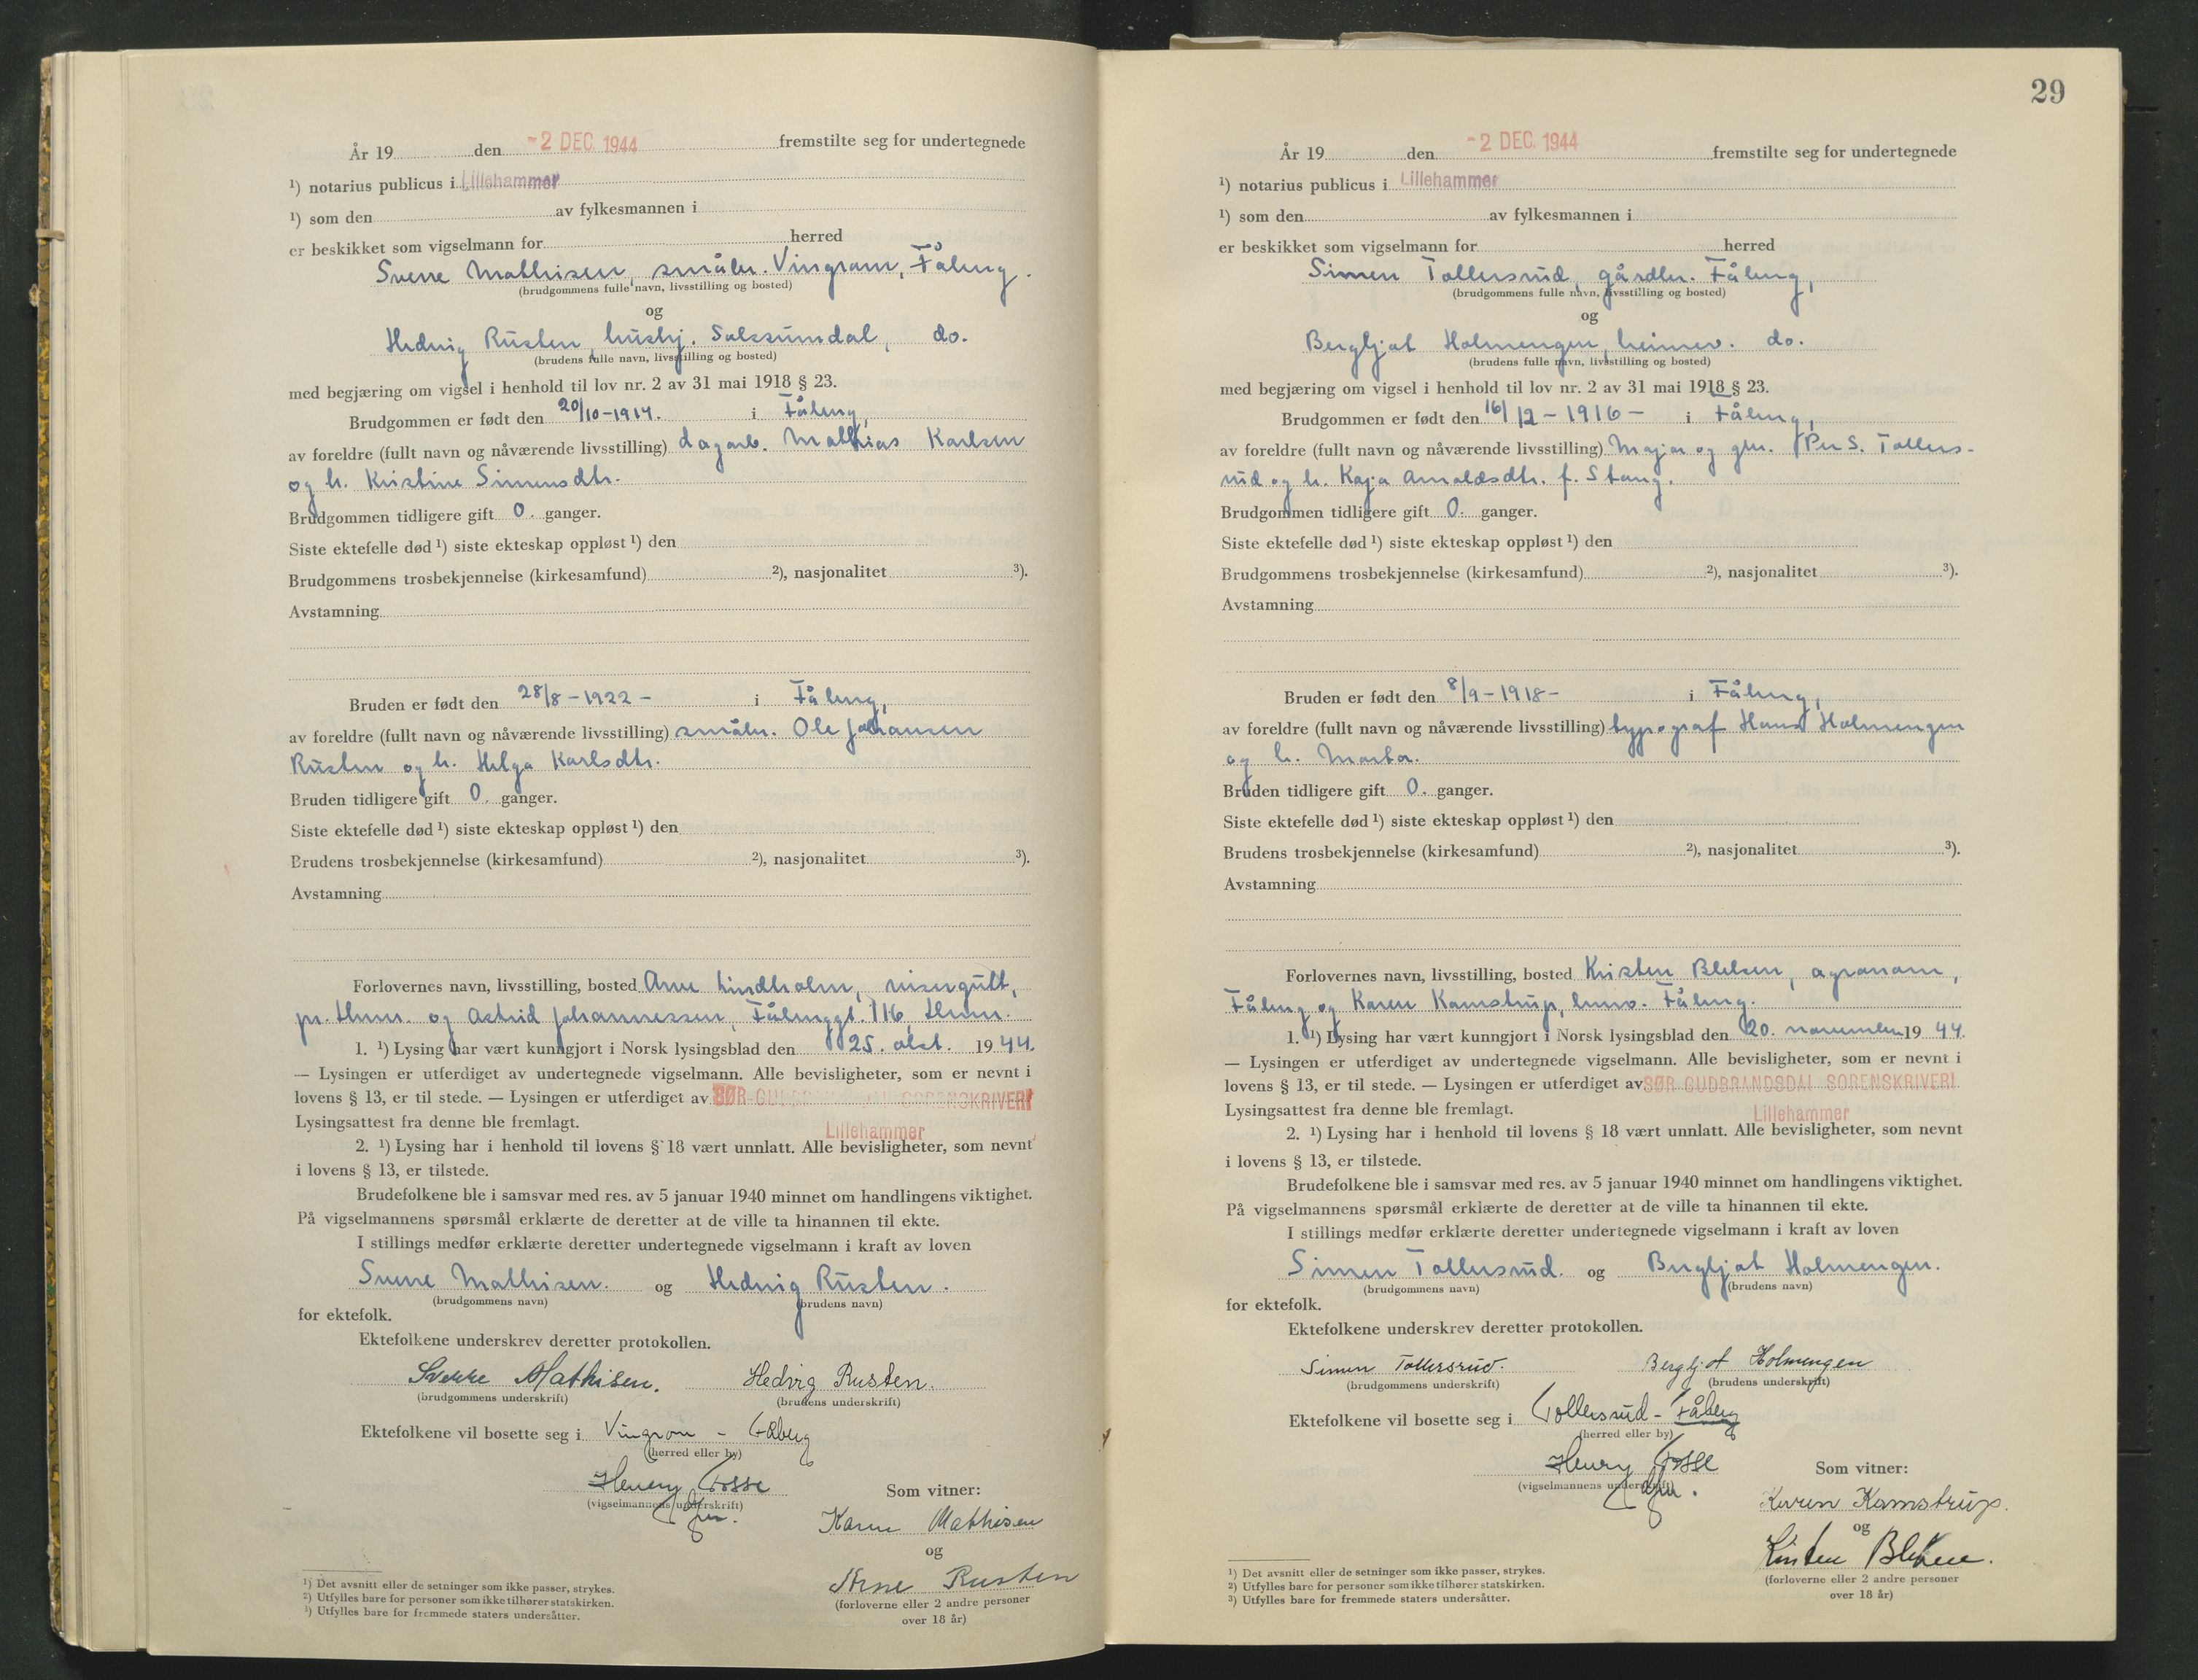 År 19 den -2 DEC. 1944 fremstilte seg for undertegnede
¹) notarius publicus i Lillehammer
¹) som den av fylkesmannen i
er beskikket som vigselmann for herred
Sverre Mathisen, småbr. Vingrom, Fåberg.
(brudgommens fulle navn, livsstilling og bosted)
og
Hedvig Rusten, hushj. Saksumdal, do.
(brudens fulle navn, livsstilling og bosted)
med begjæring om vigsel i henhold til lov nr. 2 av 31 mai 1918 § 23.
Brudgommen er født den 20/10-1914. i Fåberg,
av foreldre (fullt navn og nåværende livsstilling) dagarb. Mathias Karlsen
og h. Kristine Simensdtr.
Brudgommen tidligere gift 0. ganger.
Siste ektefelle død ¹) siste ekteskap oppløst ¹) den
Brudgommens trosbekjennelse (kirkesamfund) ²), nasjonalitet ³).
Avstamning
Bruden er født den 28/8-1922- i Fåberg,
av foreldre (fullt navn og nåværende livsstilling) småbr. Ole Johansen
Rusten og h. Helga Karlsdtr.
Bruden tidligere gift 0. ganger.
Siste ektefelle død ¹) siste ekteskap oppløst ¹) den
Brudens trosbekjennelse (kirkesamfund) ²), nasjonalitet ³).
Avstamning
Forlovernes navn, livsstilling, bosted Arne Lindholm, visergutt,
pr. Hmr. og Astrid Johannessen, Fåbergt. 116, Hmr.
1. ¹) Lysing har vært kunngjort i Norsk lysingsblad den 25. okt. 1944.
— Lysingen er utferdiget av undertegnede vigselmann. Alle bevisligheter, som er nevnt i
lovens § 13, er til stede. — Lysingen er utferdiget av SØR-GUDBRANDSDAL SORENSKRIVERI
Lysingsattest fra denne ble fremlagt. Lillehammer
2. ¹) Lysing har i henhold til lovens § 18 vært unnlatt. Alle bevisligheter, som nevnt
i lovens § 13, er tilstede.
Brudefolkene ble i samsvar med res. av 5 januar 1940 minnet om handlingens viktighet.
På vigselmannens spørsmål erklærte de deretter at de ville ta hinannen til ekte.
I stillings medfør erklærte deretter undertegnede vigselmann i kraft av loven
Sverre Mathisen. og Hedvig Rusten.
(brudgommens navn) (brudens navn)
for ektefolk.
Ektefolkene underskrev deretter protokollen.
Sverre Mathisen. Hedvig Rusten.
(brudgommens underskrift) (brudens underskrift)
Ektefolkene vil bosette seg i Vingrom - Fåberg
(herred eller by)
Henry Fosse
(vigselmannens underskrift)
Som vitner:
Karen Mathisen
og
Arne Rusten
(forloverne eller 2 andre personer
over 18 år)
¹) Det avsnitt eller de setninger som ikke passer, strykes.
²) Utfylles bare for personer som ikke tilhører statskirken.
³) Utfylles bare for fremmede staters undersåtter.
29
År 19 den -2 DEC. 1944 fremstilte seg for undertegnede
¹) notarius publicus i Lillehammer
¹) som den av fylkesmannen i
er beskikket som vigselmann for herred
Simen Tollersrud, gårdbr. Fåberg,
(brudgommens fulle navn, livsstilling og bosted)
og
Bergljot Holmengen, heimev. do.
(brudens fulle navn, livsstilling og bosted)
med begjæring om vigsel i henhold til lov nr. 2 av 31 mai 1918 § 23.
Brudgommen er født den 16/12-1916- i Fåberg,
av foreldre (fullt navn og nåværende livsstilling) Major og gbr. Per S. Tollers-
rud og h. Kaja Arnoldsdtr. f. Stang.
Brudgommen tidligere gift 0. ganger.
Siste ektefelle død ¹) siste ekteskap oppløst ¹) den
Brudgommens trosbekjennelse (kirkesamfund) ²), nasjonalitet ³).
Avstamning
Bruden er født den 8/9-1918- i Fåberg,
av foreldre (fullt navn og nåværende livsstilling) typograf Hans Holmengen
og h. Marta.
Bruden tidligere gift 0. ganger.
Siste ektefelle død ¹) siste ekteskap oppløst ¹) den
Brudens trosbekjennelse (kirkesamfund) ²), nasjonalitet ³).
Avstamning
Forlovernes navn, livsstilling, bosted Kristen Bleken, agronom,
Fåberg og Karen Kamstrup, hmv. Fåberg.
1. ¹) Lysing har vært kunngjort i Norsk lysingsblad den 20. november 1944.
— Lysingen er utferdiget av undertegnede vigselmann. Alle bevisligheter, som er nevnt i
lovens § 13, er til stede. — Lysingen er utferdiget av SØR-GUDBRANDSDAL SORENSKRIVERI
Lysingsattest fra denne ble fremlagt. Lillehammer
2. ¹) Lysing har i henhold til lovens § 18 vært unnlatt. Alle bevisligheter, som nevnt
i lovens § 13, er tilstede.
Brudefolkene ble i samsvar med res. av 5 januar 1940 minnet om handlingens viktighet.
På vigselmannens spørsmål erklærte de deretter at de ville ta hinannen til ekte.
I stillings medfør erklærte deretter undertegnede vigselmann i kraft av loven
Simen Tollersrud. og Bergljot Holmengen.
(brudgommens navn) (brudens navn)
for ektefolk.
Ektefolkene underskrev deretter protokollen.
Simen Tollersrud. Bergljot Holmengen
(brudgommens underskrift) (brudens underskrift)
Ektefolkene vil bosette seg i Tollersrud - Fåberg
(herred eller by)
Henry Fosse
(vigselmannens underskrift)
Som vitner:
Karen Kamstrup.
og
Kristen Bleken.
(forloverne eller 2 andre personer
over 18 år)
¹) Det avsnitt eller de setninger som ikke passer, strykes.
²) Utfylles bare for personer som ikke tilhører statskirken.
³) Utfylles bare for fremmede staters undersåtter.